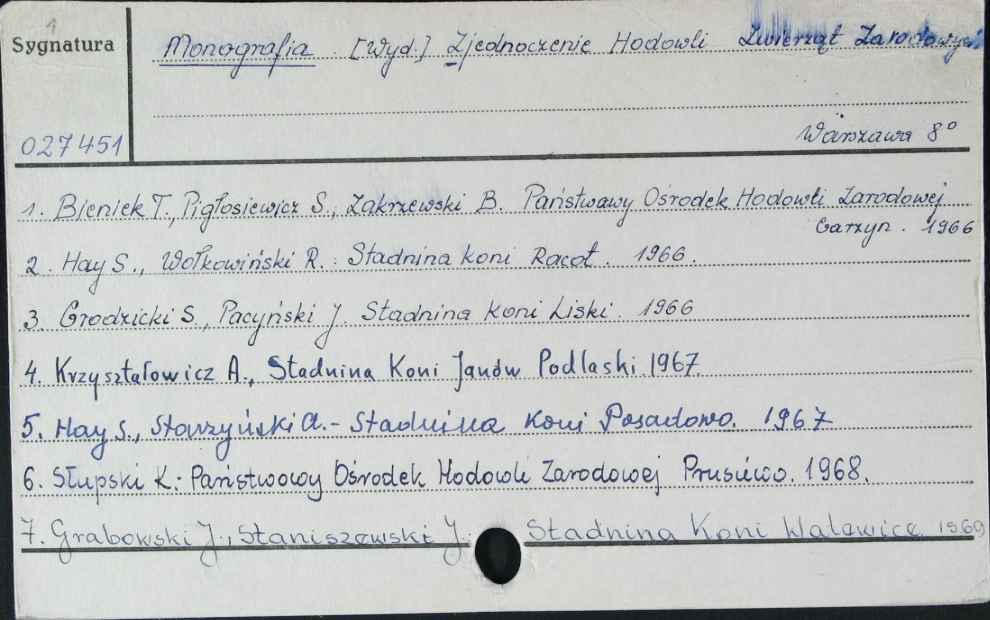 1
Sygnatura
Monografia. [Wyd.] Zjednoczenie Hodowli Zwierząt Zarodowych
Warszawa 8°
027451
1. Bieniek T., Pigłosiewicz S., Zakrzewski B. Państwowy Ośrodek Hodowli Zarodowej
Garzyn. 1966
2. Hay S., Wołkowiński R. : Stadnina Koni Racot. 1966.
3. Grodzicki S., Pacyński J. Stadnina Koni Liski. 1966
4. Krzyształowicz A., Stadnina Koni Janów Podlaski 1967
5. Hay S., Starzyński A. - Stadnina Koni Posadowo. 1967
6. Słupski K: Państwowy Ośrodek Hodowli Zarodowej Prusiewo. 1968.
7. Grabowski J., Staniszewski J. Stadnina Koni Walewice 1969